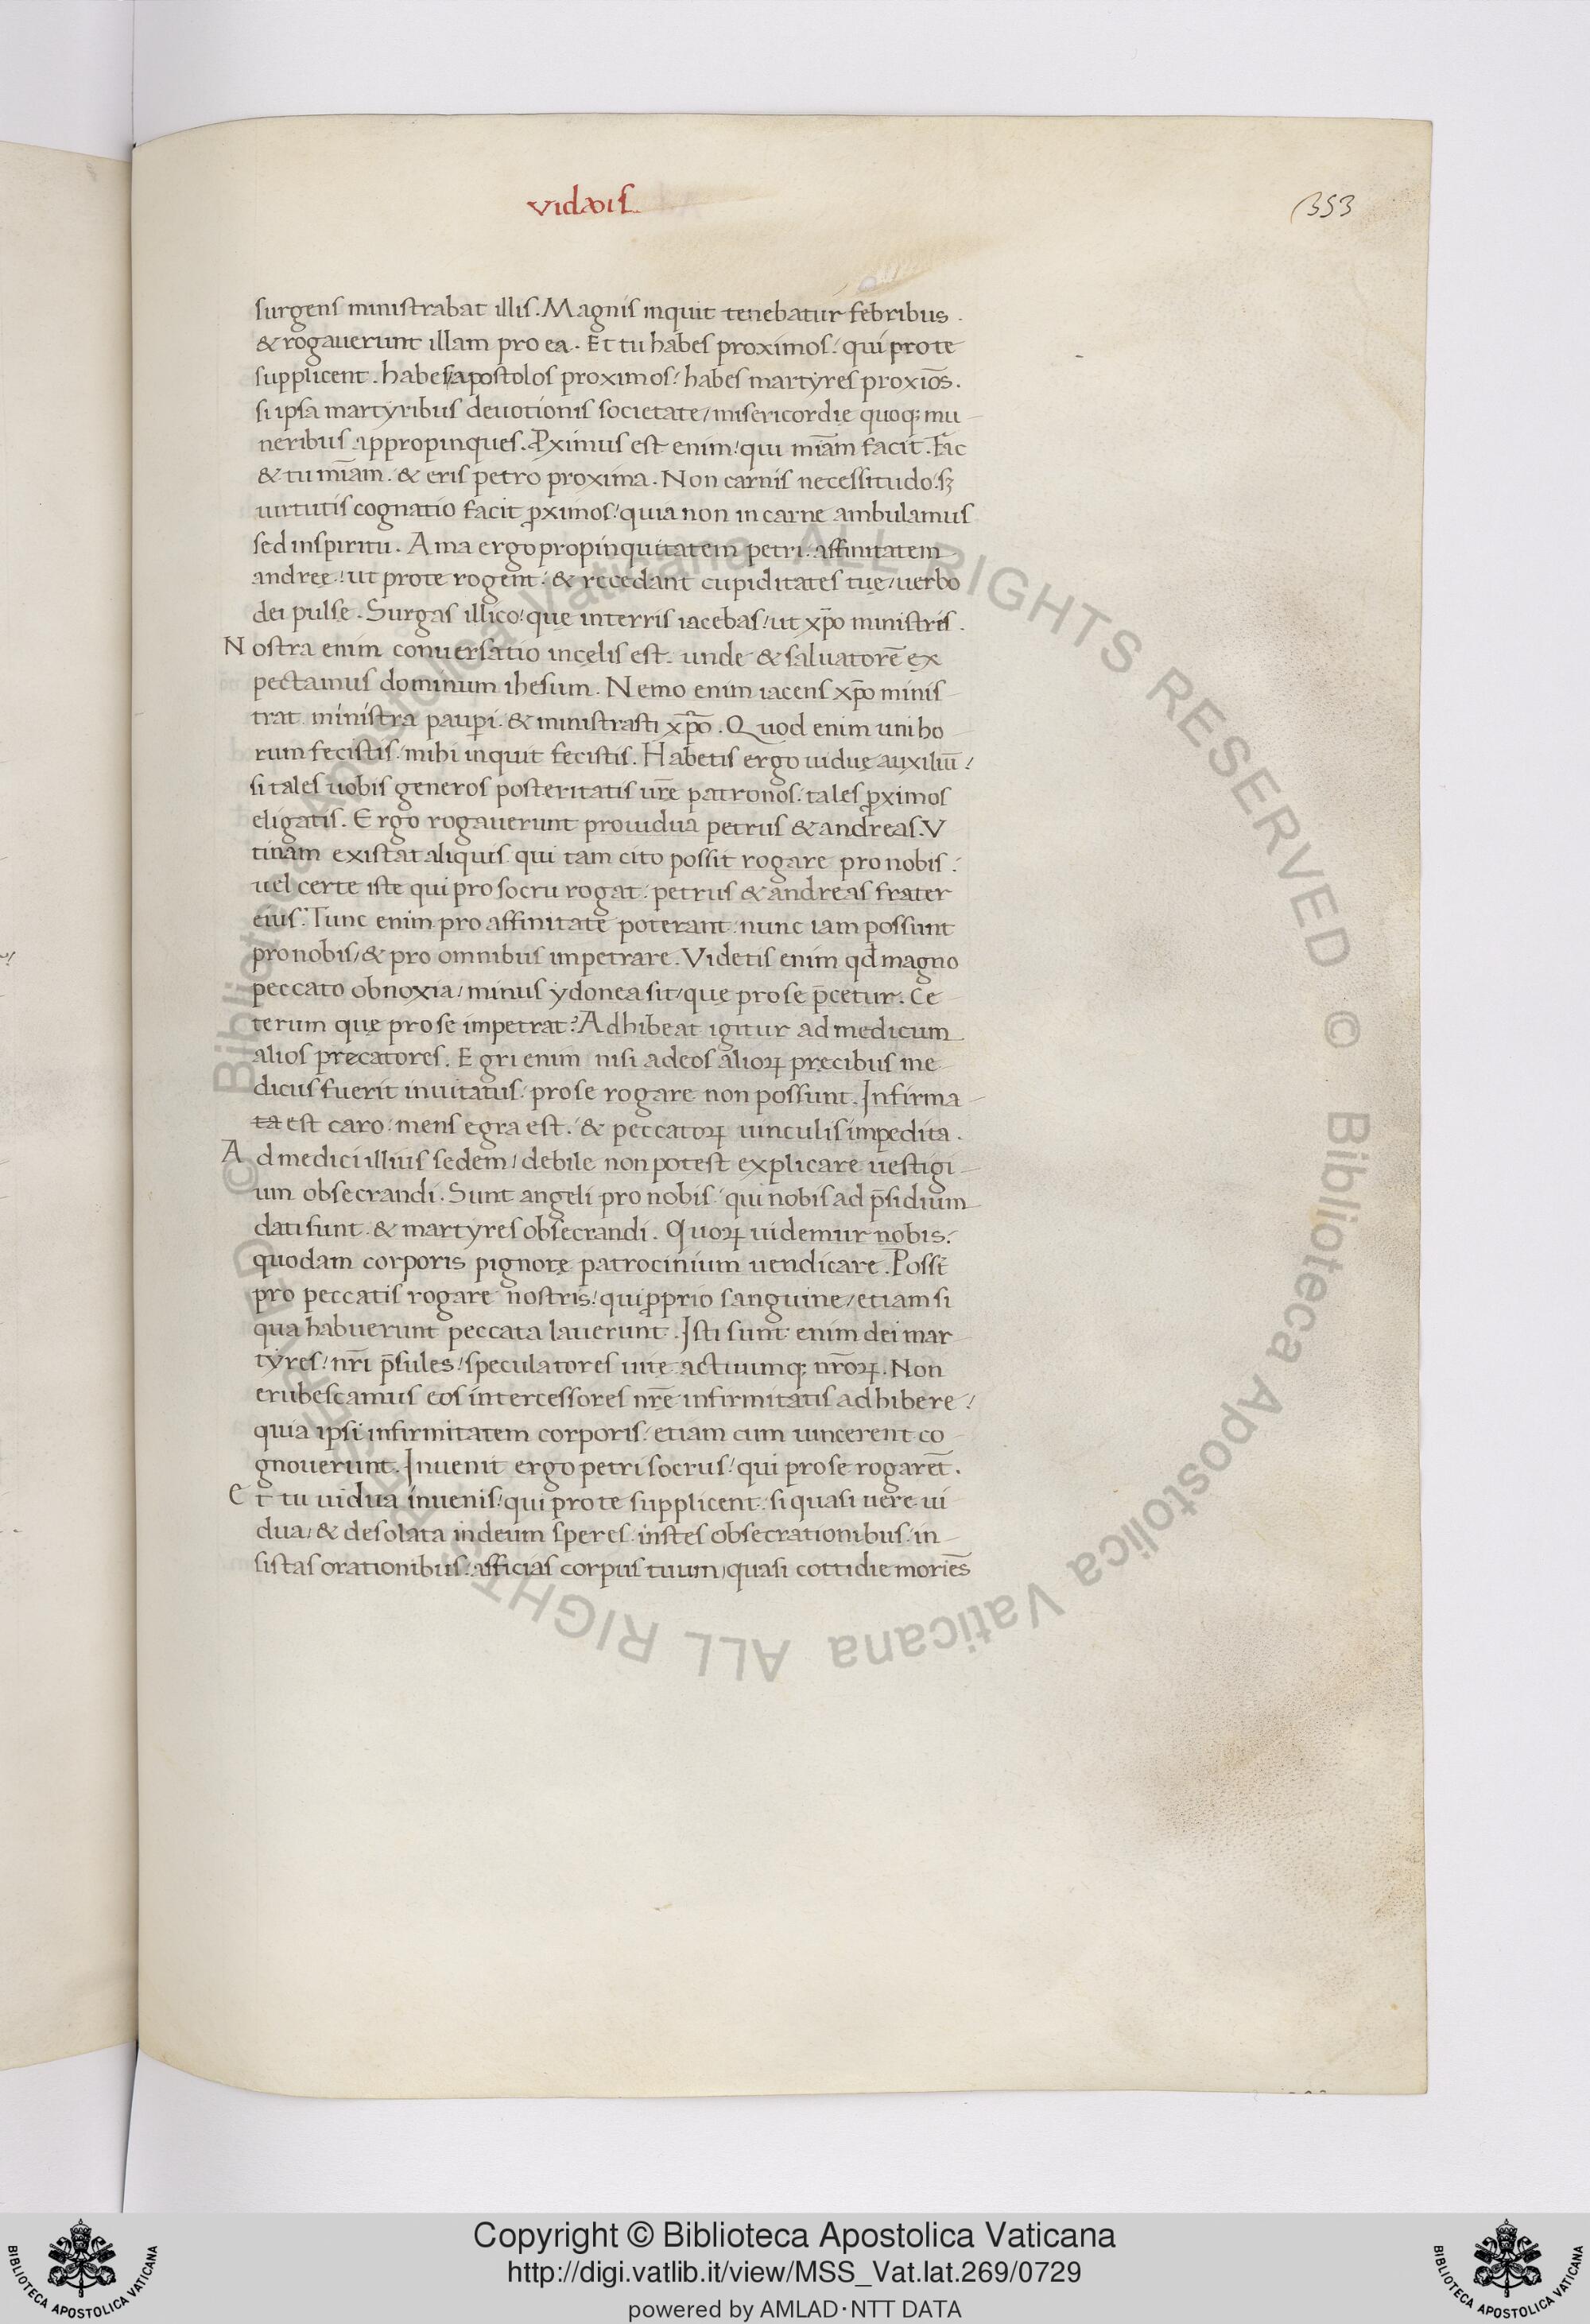 viduis
353
surgens ministrabat illis. Magnis inquit tenebatur febribus.
& rogauerunt illam pro ea. Et tu habes proximos: qui pro te
supplicent. habes apostolos proximos: habes martyres proxiōs.
si ipsa martyribus deuotionis societate, misericordię quoq; mu-
neribus appropinques. Pximus est enim: qui miām facit. Fac
& tu miām. & eris petro proxima. Non carnis necessitudo: sꝫ
uirtutis cognatio facit ꝓximos: quia non in carne ambulamus
sed in spiritu. Ama ergo propinquitatem petri. affinitatem
andreę: ut pro te rogent: & recedant cupiditates tuę, uerbo
dei pulsę. Surgas illico: quę in terris iacebas: ut xp̄o ministres.
Nostra enim conuersatio in cęlis est. unde & saluatorē ex
pectamus dominum ihesum. Nemo enim iacens xp̄o minis-
trat. ministra paup̱i. & ministrasti xp̄o. Quod enim uni ho-
rum fecistis: mihi inquit fecistis. Habetis ergo uiduę auxiliū:
si tales uobis generos posteritatis ur̄e patronos. tales ꝓximos
eligatis. Ergo rogauerunt pro uidua petrus & andreas. V
tinam existat aliquis qui tam cito possit rogare pro nobis:
uel certe iste qui pro socru rogat: petrus & andreas frater
eius. Tunc enim pro affinitate poterant: nunc iam possunt
pro nobis, & pro omnibus impetrare. Videtis enim qđ magno
peccato obnoxia, minus ydonea sit, quę pro se p̄cetur. Ce-
terum quę pro se impetrat? Adhibeat igitur ad medicum
alios precatores. Egri enim nisi ad eos alioꝝ pręcibus me-
dicus fuerit inuitatus: pro se rogare non possunt. Infirma-
ta est caro: mens egra est. & peccatoꝝ uinculis impedita.
Ad medici illius sedem, debile non potest explicare uestigi-
um obsecrandi. Sunt angeli pro nobis: qui nobis ad p̄sidium
dati sunt. & martyres obsecrandi. Quoꝝ uidemur nobis:
quodam corporis pignore patrocinium uendicare. Possūt
pro peccatis rogare nostris: qui ꝓprio sanguine, etiam si
qua habuerunt peccata lauerunt. Isti sunt enim dei mar-
tyres: nr̄i p̄sules: speculatores uitę. actuumq; nr̄oꝝ. Non
erubescamus eos intercessores nr̄e infirmitatis adhibere:
quia ipsi infirmitatem corporis: etiam cum uincerent co-
gnouerunt. Inuenit ergo petri socrus: qui pro se rogarēt.
Et tu uidua inuenis: qui pro te supplicent. si quasi uere ui
dua, & desolata in deum speres. instes obsecrationibus. in-
sistas orationibus: afficias corpus tuum, quasi cottidie moriēs
Copyright © Biblioteca Apostolica Vaticana
http://digi.vatlib.it/view/MSS_Vat.lat.269/0729
powered by AMLAD·NTT DATA
BIBLIOTECA APOSTOLICA VATICANA
BIBLIOTECA APOSTOLICA VATICANA
© Biblioteca Apostolica Vaticana ALL RIGHTS RESERVED © Biblioteca Apostolica Vaticana ALL RIGHTS RESERVED